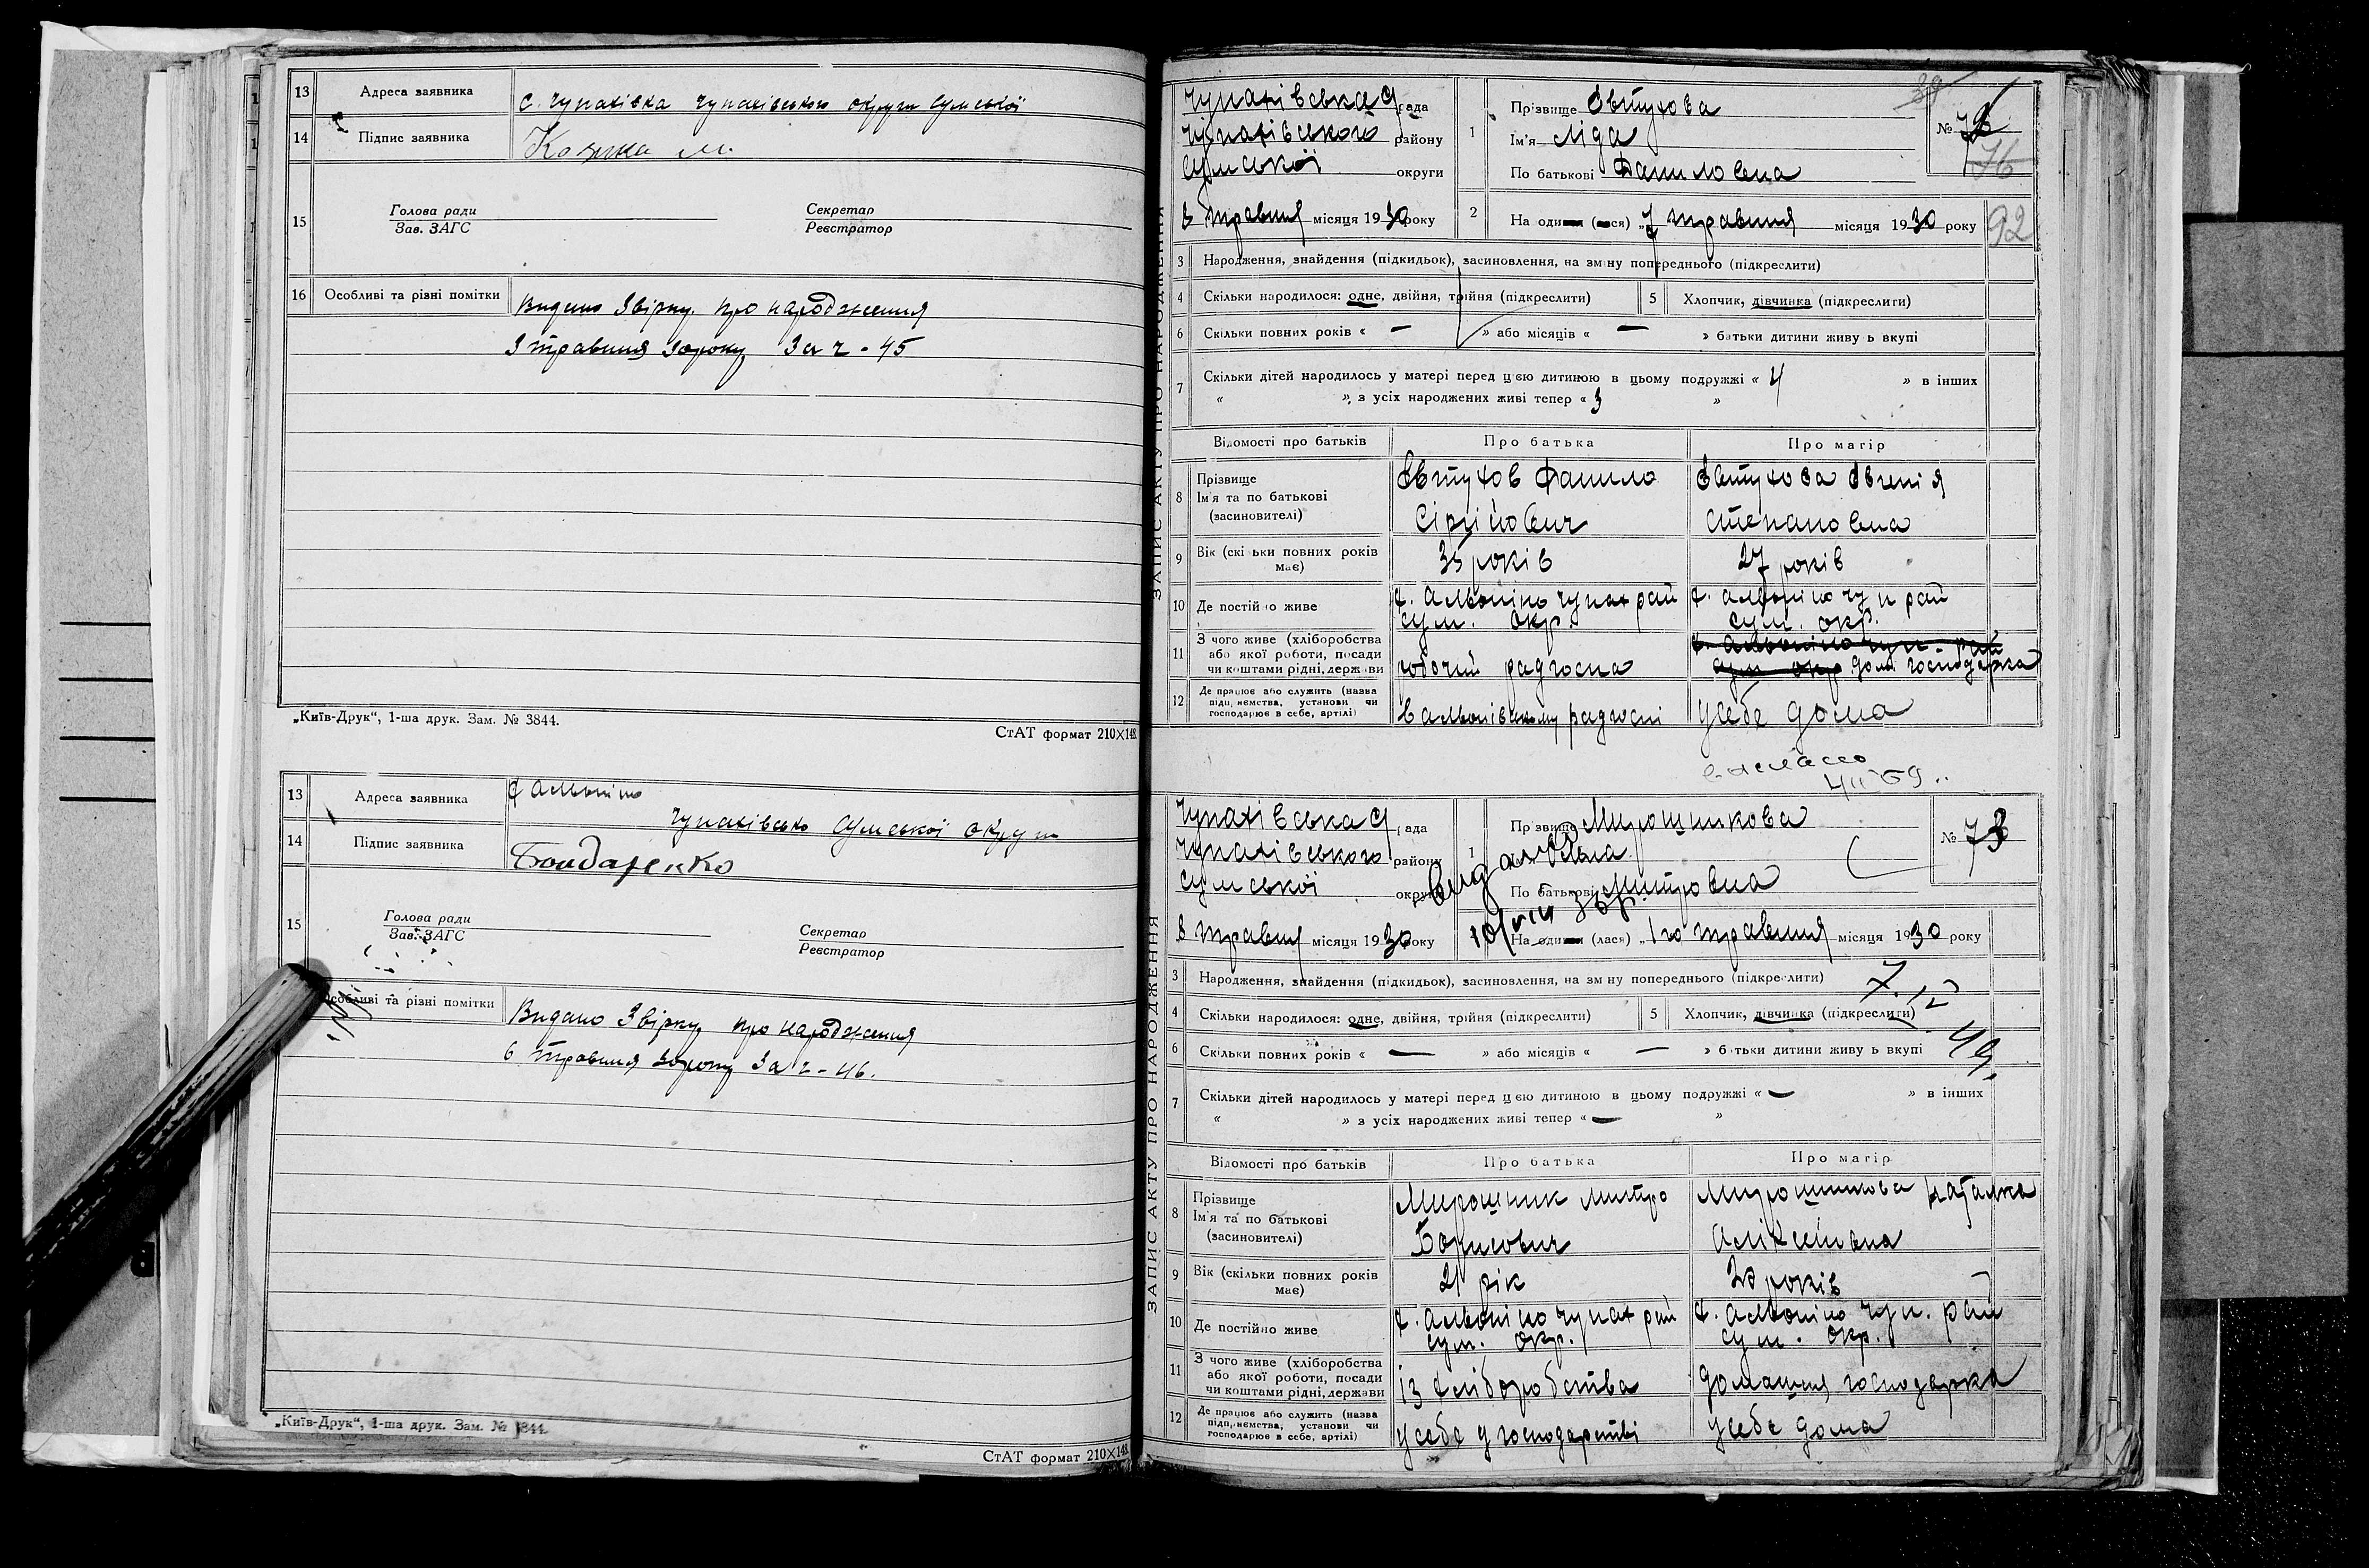 13 Адреса заявника с. Чупахівка Чупахівського округи Сумської
14 Підпис заявника
15 Голова ради Секретар
Зав. ЗАГС Реєстратор
16 Особливі та різні помітки Видано Звірку про народження
3 травня 30 року За ч - 45
„Київ-Друк“, 1-ша друк. Зам. № 3844.
СтАТ формат 210×148
13 Адреса заявника х Альоніно
Чупахівсько Сумської округи
14 Підпис заявника Бондаренко
15 Голова ради Секретар
Зав. ЗАГС Реєстратор
Особливі та різні помітки Видано Звірку про народження
6 травня 30 року За ч - 46.
„Київ-Друк“, 1-ша друк. Зам. № 3844
СтАТ формат 210×148
ЗАПИС АКТУ ПРО НАРОДЖЕННЯ
Чупахівська рада
Чупахівського району
Сумської округи
8 травня місяця 1930 року
39
1 Прізвище Євтухова
Ім'я Ліда
По батькові Даниловна
№ 72
76
2 На один (лася) „7 травня місяця 1930 року
92
3 Народження, знайдення (підкидьок), засиновлення, на зміну попереднього (підкреслити)
4 Скільки народилося: одне, двійня, трійня (підкреслити) 5 Хлопчик, дівчинка (підкреслити)
6 Скільки повних років « — » або місяців « — » батьки дитини живуть вкупі
7 Скільки дітей народилось у матері перед цією дитиною в цьому подружжі « 4 » в інших
« », з усіх народжених живі тепер « 3 »
Відомості про батьків Про батька Про матір
8 Прізвище Ім'я та по батькові (засиновителі) Євтухов Данило Сіргійович Євтухова Євгенія Степановна
9 Вік (скільки повних років має) 35 років 27 років
10 Де постійно живе х. Альоніно Чупах рай Сум. окр. х. Альоніно Чуп рай Сум. окр.
11 З чого живе (хліборобства або якої роботи, посади чи коштами рідні, держави робочий радгоспа х. Альоніно Чуп. рай Сум окр дома господарка
12 Де працює або служить (назва підприємства, установи чи господарює в себе, артілі) в Альонівському радгоспі у себе дома
ЗАПИС АКТУ ПРО НАРОДЖЕННЯ
Чупахівська рада
Чупахівського району
Сумської округи
8 травня місяця 1930 року
1 Прізвище Мирошникова
По батькові Митровна
№ 73
На один (лася) „1го травня місяця 1930 року
3 Народження, знайдення (підкидьок), засиновлення, на зміну попереднього (підкреслити)
4 Скільки народилося: одне, двійня, трійня (підкреслити) 5 Хлопчик, дівчинка (підкреслити)
6 Скільки повних років « — » або місяців « — » батьки дитини живуть вкупі
7 Скільки дітей народилось у матері перед цією дитиною в цьому подружжі « — » в інших
« » з усіх народжених живі тепер « — »
Відомості про батьків Про батька Про матір
8 Прізвище Ім'я та по батькові (засиновителі) Мирошник Митро Борисович Мирошникова Наталка Аліксіївна
9 Вік (скільки повних років має) 21 рік 20 років
10 Де постійно живе х. Альоніно Чупах рай Сум. окр. х. Альоніно Чуп. рай Сум. окр.
11 З чого живе (хліборобства або якої роботи, посади чи коштами рідні, держави із хліборобства домашня господарка
12 Де працює або служить (назва підприємства, установи чи господарює в себе, артілі) у себе у господарстві у себе дома